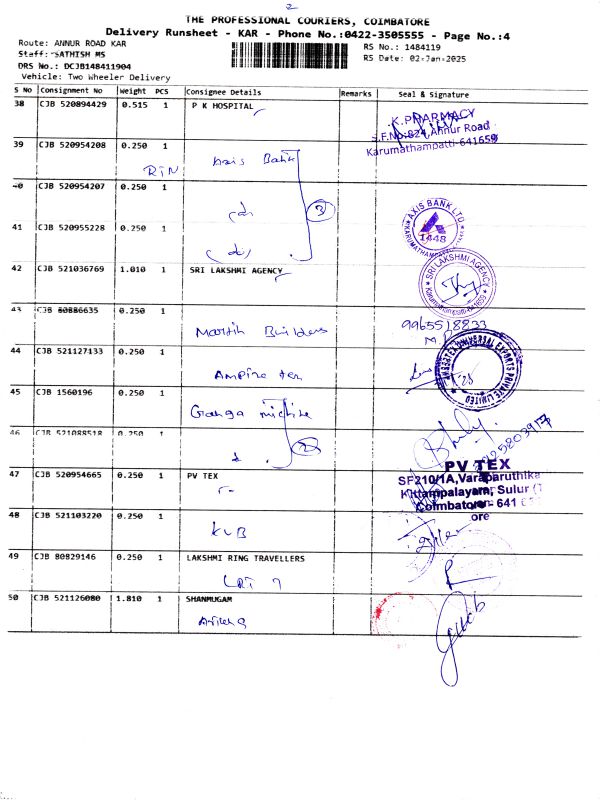 2
THE PROFESSIONAL COURIERS, COIMBATORE
Delivery Runsheet - KAR - Phone No.:0422-3505555 - Page No.:4
Route: ANNUR ROAD KAR
RS No.: 1484119
Staff: SATHISH MS
RS Date: 02-Jan-2025
DRS No.: DCJB148411904
Vehicle: Two Wheeler Delivery
S No Consignment No Weight PCS Consignee Details Remarks Seal & Signature
38 CJB 520894429 0.515 1 P K HOSPITAL
K.PHARMACY
S.F.No:824,Annur Road
Karumathampatti-641659
39 CJB 520954208 0.250 1
RTN Axis Bank
40 CJB 520954207 0.250 1
(do) 3
AXIS BANK LTD
1448
41 CJB 520955228 0.250 1
(do)
42 CJB 521036769 1.010 1 SRI LAKSHMI AGENCY
SRI LAKSHMI AGENCY
43 CJB 80886635 0.250 1
Builders
9965518833
44 CJB 521127133 0.250 1
UNIVERSAL EXPORTS PRIVATE LIMITED
45 CJB 1560196 0.250 1
Ganga
46 CJB 521088518 0.250 1
2
47 CJB 520954665 0.250 1 PV TEX
PV TEX
SF210/1A,Varaparuthikadu
Kittampalayam, Sulur
Coimbatore - 641
48 CJB 521103220 0.250 1
KVB
49 CJB 80829146 0.250 1 LAKSHMI RING TRAVELLERS
LRT
50 CJB 521126080 1.810 1 SHANMUGAM